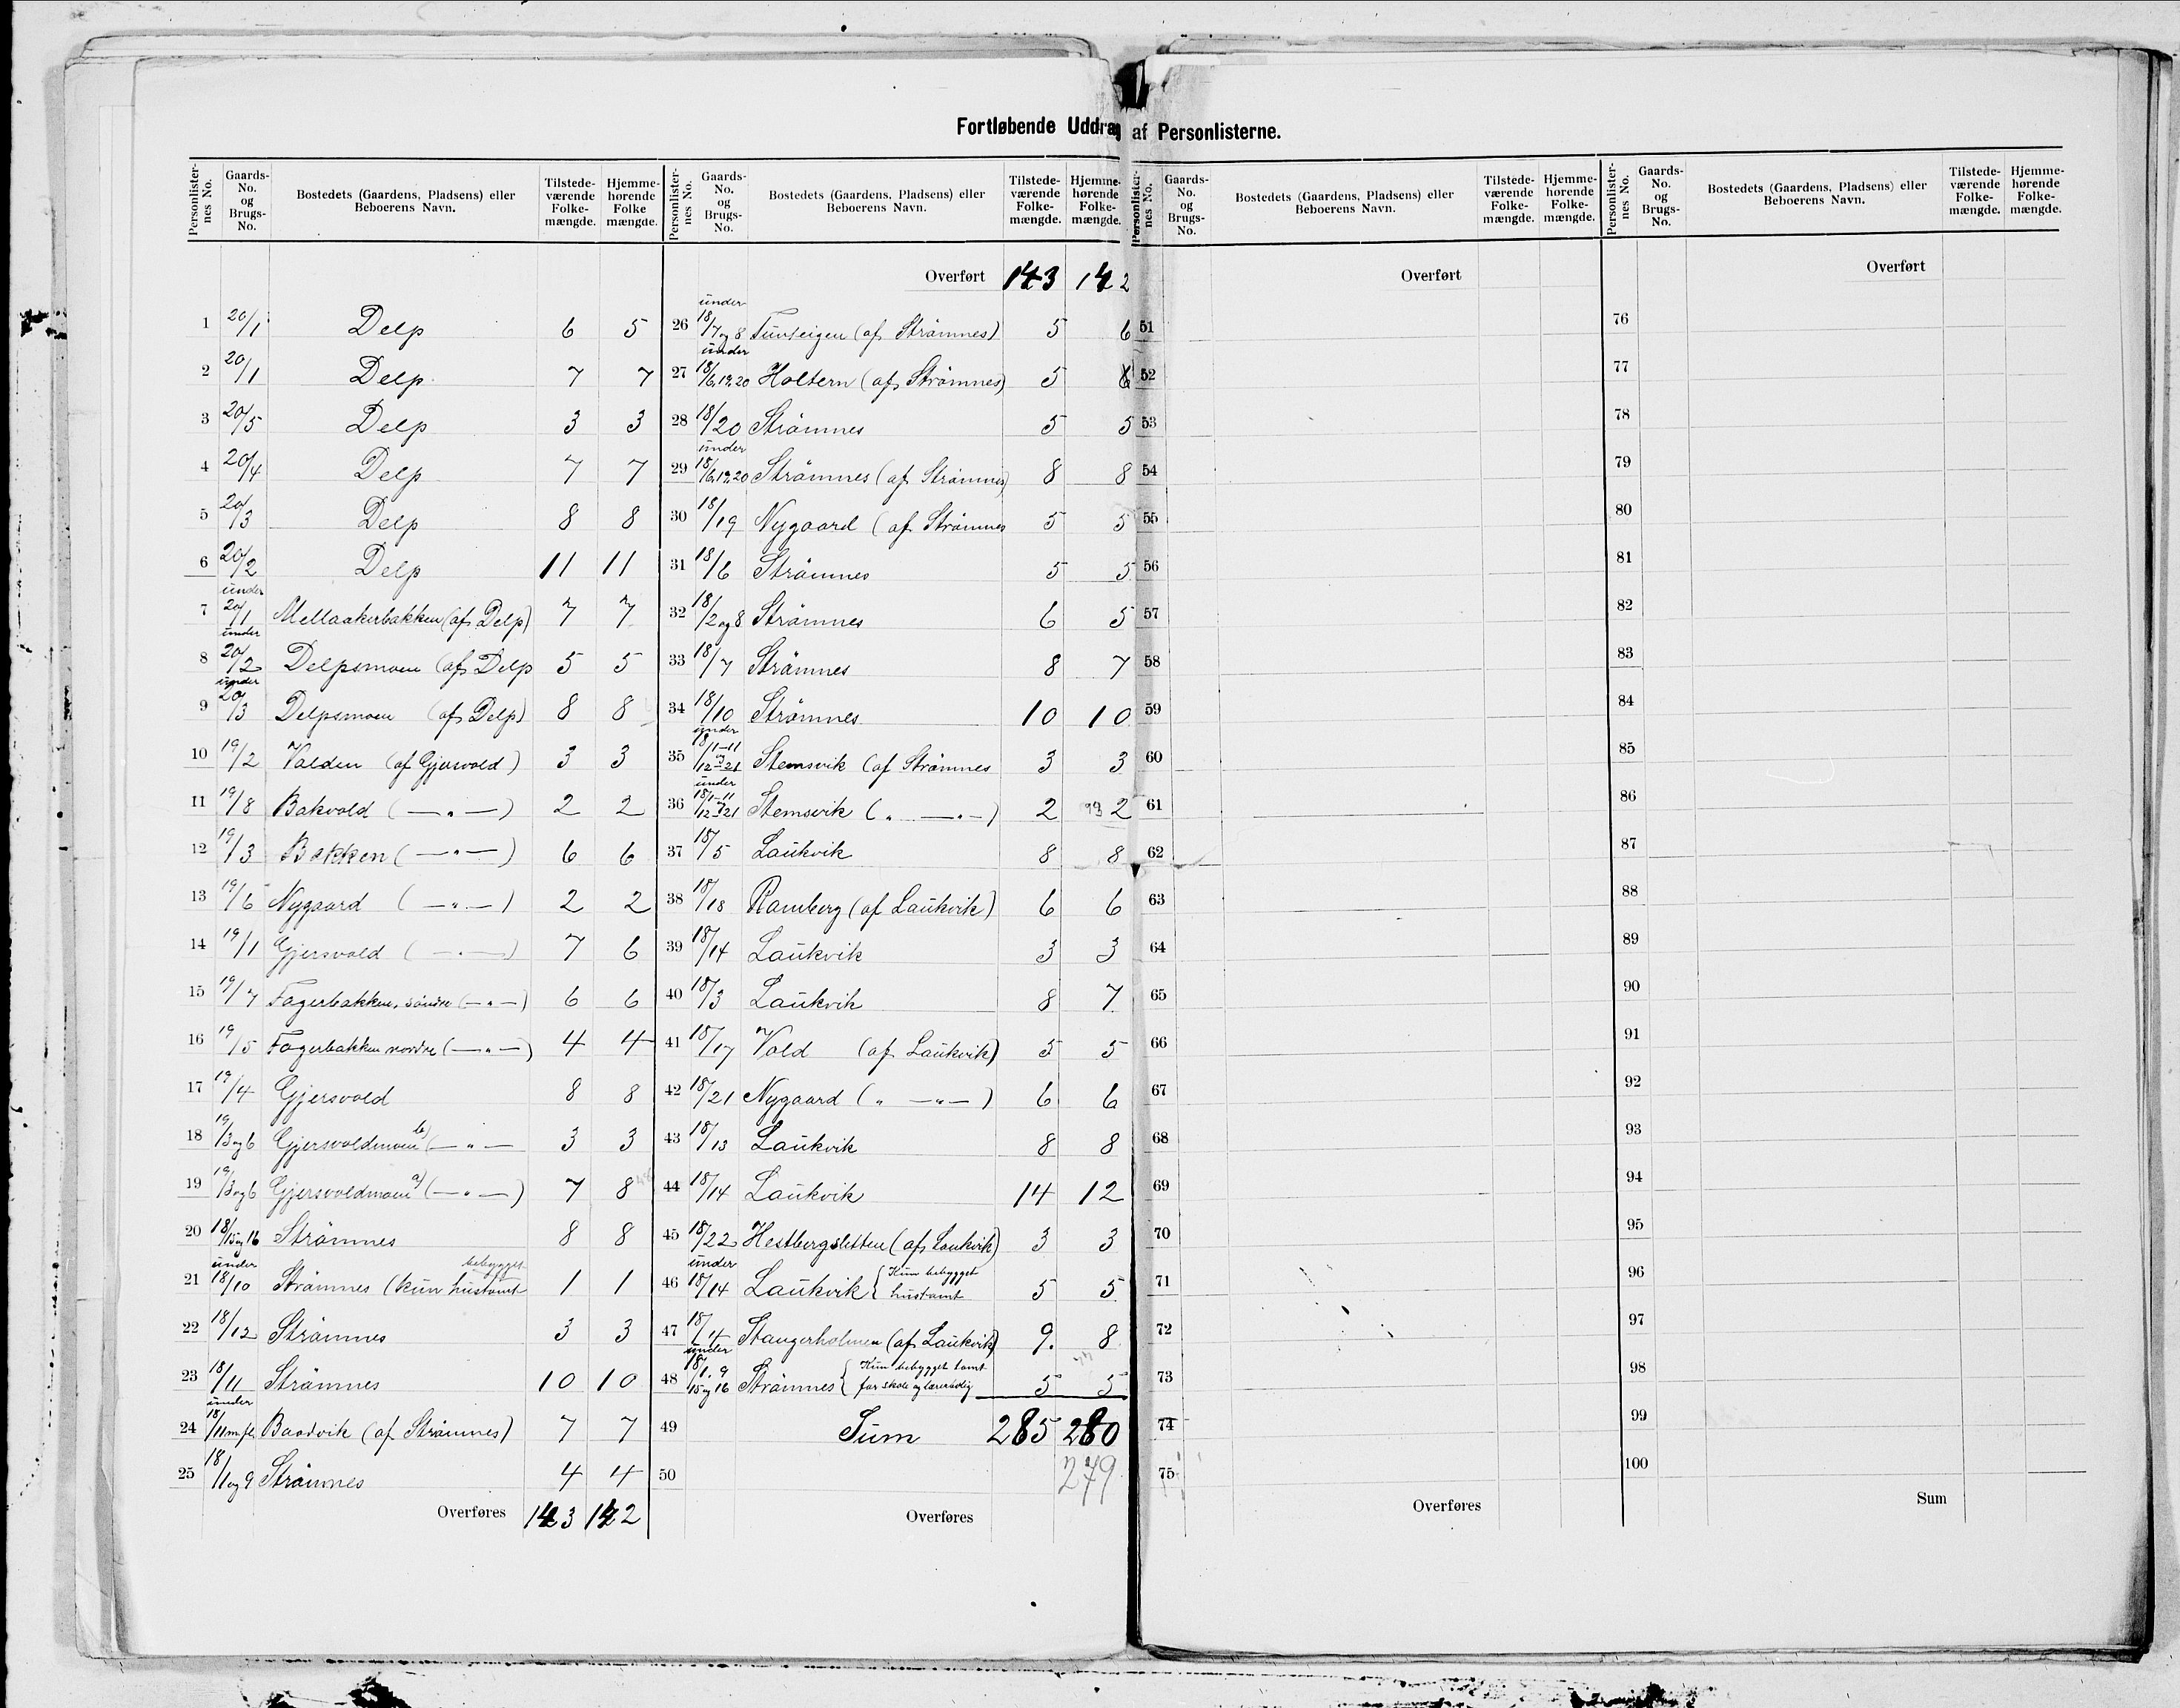 Fortløbende Uddrag af Personlisterne.
Personlister-nes No. Gaards-No. og Brugs-No. Bostedets (Gaardens, Pladsens) eller Beboerens Navn. Tilstede-værende Folke-mængde. Hjemme-hørende Folke mængde.
1 20/1 Delp 6 5
2 20/1 Delp 7 7
3 20/5 Delp 3 3
4 20/4 Delp 7 7
5 20/3 Delp 8 8
6 20/2 Delp 11 11
7 under 20/1 Mellaakerbakken (af Delp) 7 7
8 under 20/2 Delpsmoen (af Delp 5 5
9 under 20/3 Delpsmoen (af Delp) 8 8
10 19/2 Valden (af Gjersvold) 3 3
11 19/8 Bakvold ( — „ — ) 2 2
12 19/3 Bakken ( — „ — ) 6 6
13 19/6 Nygaard ( — „ — ) 2 2
14 19/1 Gjersvold ( — „ — ) 7 6
15 19/7 Fagerbakken, söndre ( — „ — ) 6 6
16 19/5 Fagerbakken nordre ( — „ — ) 4 4
17 19/4 Gjersvold 8 8
18 19/3 og 6 Gjersvoldmoen b) ( — „ — 3 3
19 19/3 og 6 Gjersvoldmoen a) ( — „ — ) 7 8
20 18/15 og 16 Strömnes 8 8
21 under 18/10 Strömnes (kun bebygget hustomt 1 1
22 18/12 Strömnes 3 3
23 18/11 Strömnes 10 10
24 under 18/11 m.fl. Baadvik (af Strömnes) 7 7
25 18/1 og 9 Strömnes 4 4
Overføres 143 142
Personlister-nes No. Gaards-No. og Brugs-No. Bostedets (Gaardens, Pladsens) eller Beboerens Navn. Tilstede-værende Folke-mængde. Hjemme-hørende Folke-mængde.
Overført 143 142
26 under 18/7 og 8 (af Strömnes) 5 6
27 under 18/6,19,20 Holtern (af Strömnes) 5
28 18/20 Strömnes 5 5
29 under 18/6,19,20 Strömnes (af Strömnes) 8 8
30 18/19 Nygaard (af Strömnes 5 5
31 18/6 Strömnes 5 5
32 18/2 og 8 Strömnes 6 5
33 18/7 Strömnes 8 7
34 18/10 Strömnes 10 10
35 under 18/1-11 og 12-21 Stemsvik (af Strömnes 3 3
36 under 18/1-11 og 12-21 Stemsvik ( „ — „ — ) 2 2
37 18/5 Laukvik 8 8
38 18/18 Ramberg (af Laukvik) 6 6
39 18/14 Laukvik 3 3
40 18/3 Laukvik 8 7
41 18/17 Vold (af Laukvik) 5 5
42 18/21 Nygaard ( „ — „ — ) 6 6
43 18/13 Laukvik 8 8
44 18/14 Laukvik 14 12
45 18/22 Hestbergsletten (af Laukvik) 3 3
46 under 18/14 Laukvik { Kun bebygget hustomt 5 5
47 18/4 Stangerholmen (af Laukvik) 9. 8
48 under 18/1.9 15 og 16 Strömnes { Kun bebygget tomt for skole og lærerbolig 5 5
49 Sum 285 280
50 279
Overføres
Personlister-nes No. Gaards-No. og Brugs-No. Bostedets (Gaardens, Pladsens) eller Beboerens Navn. Tilstede-værende Folke-mængde. Hjemme-hørende Folke-mængde.
Overført
51
52
53
54
55
56
57
58
59
60
61
62
63
64
65
66
67
68
69
70
71
72
73
74
75
Overføres
Personlister-nes No. Gaards-No. og Brugs-No. Bostedets (Gaardens, Pladsens) eller Beboerens Navn. Tilstede-værende Folke-mængde. Hjemme-hørende Folke-mængde.
Overført
76
77
78
79
80
81
82
83
84
85
86
87
88
89
90
91
92
93
94
95
96
97
98
99
100
Sum